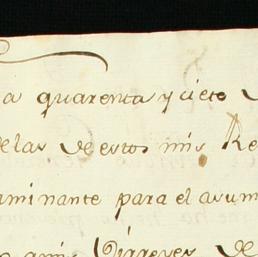 a quarenta y ciete
elas de estos mis Re
aminante para el asum
a mis Virreyes de